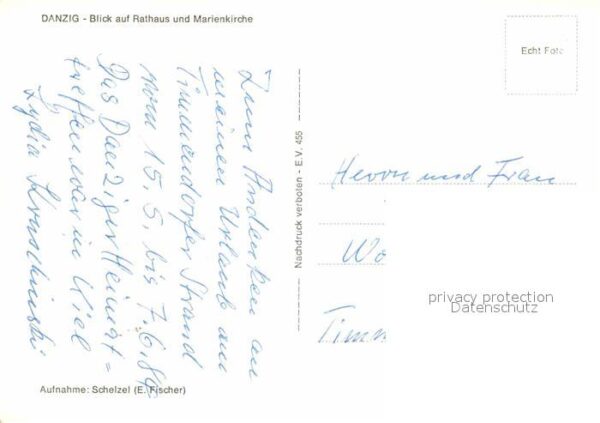 DANZIG - Blick auf Rathaus und Marienkirche
Zum Andenken an
meinen Urlaub am
Timmendorfer Strand
vom 15.5. bis 7.6.84
Das Danziger Heimat=
treffen war in Kiel
Lydia
Aufnahme: Schelzel (E. Fischer)
Nachdruck verboten - E.V. 455
Echt Foto
Herrn und Frau
Wo
Timm
privacy protection
Datenschutz